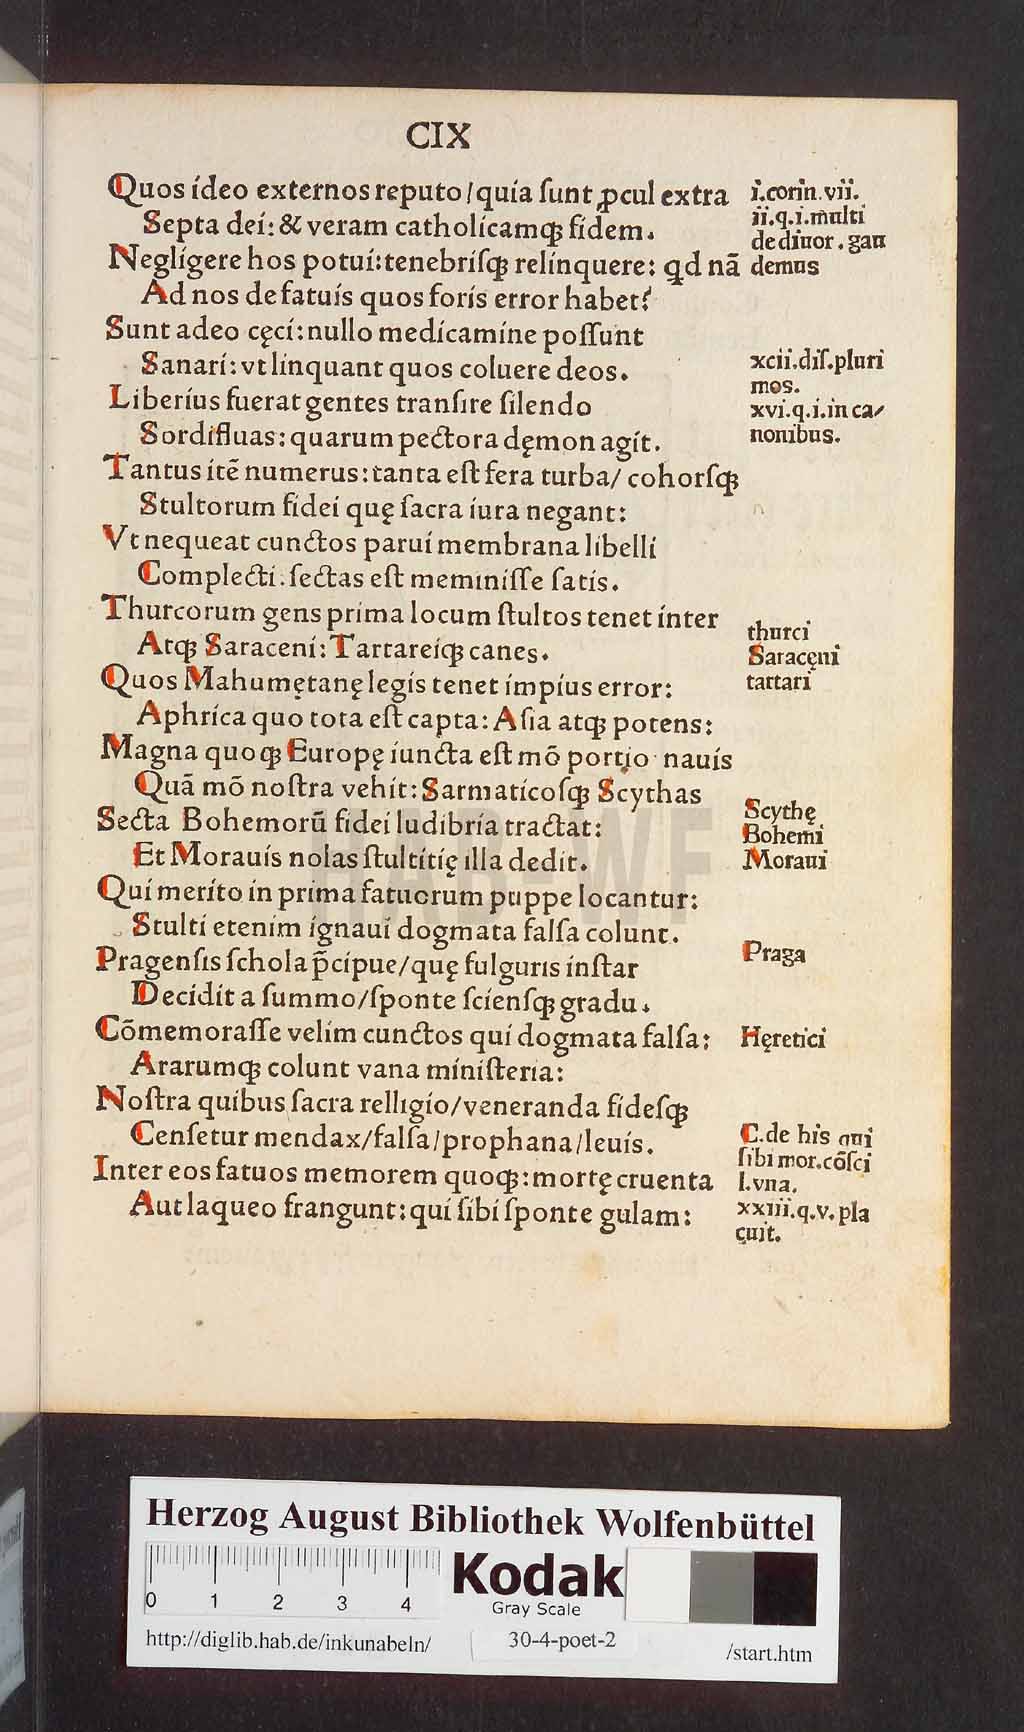 CIX
Quos ideo externos reputo/quia ſunt ꝓcul extra
Septa dei: & veram catholicamqꝫ fidem.
Negligere hos potui: tenebriſqꝫ relinquere: qd nã
Ad nos de fatuis quos foris error habet?
Sunt adeo cęci: nullo medicamine poſſunt
Sanari: vt linquant quos coluere deos.
Liberius fuerat gentes tranſire ſilendo
Sordifluas: quarum pectora dęmon agit.
Tantus itẽ numerus: tanta eſt fera turba/ cohorſqꝫ
Stultorum fidei quę ſacra iura negant:
Vt nequeat cunctos parui membrana libelli
Complecti: ſectas eſt meminiſſe ſatis.
Thurcorum gens prima locum ſtultos tenet inter
Atqꝫ Saraceni: Tartareiqꝫ canes.
Quos Mahumętanę legis tenet impius error:
Aphrica quo tota eſt capta: Aſia atqꝫ potens:
Magna quoqꝫ Europę iuncta eſt mõ portio nauis
Quã mõ noſtra vehit: Sarmaticoſqꝫ Scythas
Secta Bohemorũ fidei ludibria tractat:
Et Morauis nolas ſtultitię illa dedit.
Qui merito in prima fatuorum puppe locantur:
Stulti etenim ignaui dogmata falſa colunt.
Pragenſis ſchola p̃cipue/quę fulguris inſtar
Decidit a ſummo/ſponte ſcienſqꝫ gradu.
Cõmemoraſſe velim cunctos qui dogmata falſa:
Ararumqꝫ colunt vana miniſteria:
Noſtra quibus ſacra relligio/veneranda fideſqꝫ
Cenſetur mendax/falſa/prophana/leuis.
Inter eos fatuos memorem quoqꝫ: mortę cruenta
Aut laqueo frangunt: qui ſibi ſponte gulam:
i.corin.vii.
ii.q.i.multi
de diuor. gau
demus
xcii.diſ.pluri
mos.
xvi.q.i.in ca/
nonibus.
thurci
Saracęni
tartari
Scythę
Bohemi
Moraui
Praga
Hęretici
C.de his qui
ſibi mor.cõſci
l.vna.
xxiii.q.v.pla
cuit.
HAB-WF
Herzog August Bibliothek Wolfenbüttel
0 1 2 3 4
Kodak
Gray Scale
http://diglib.hab.de/inkunabeln/
30-4-poet-2
/start.htm